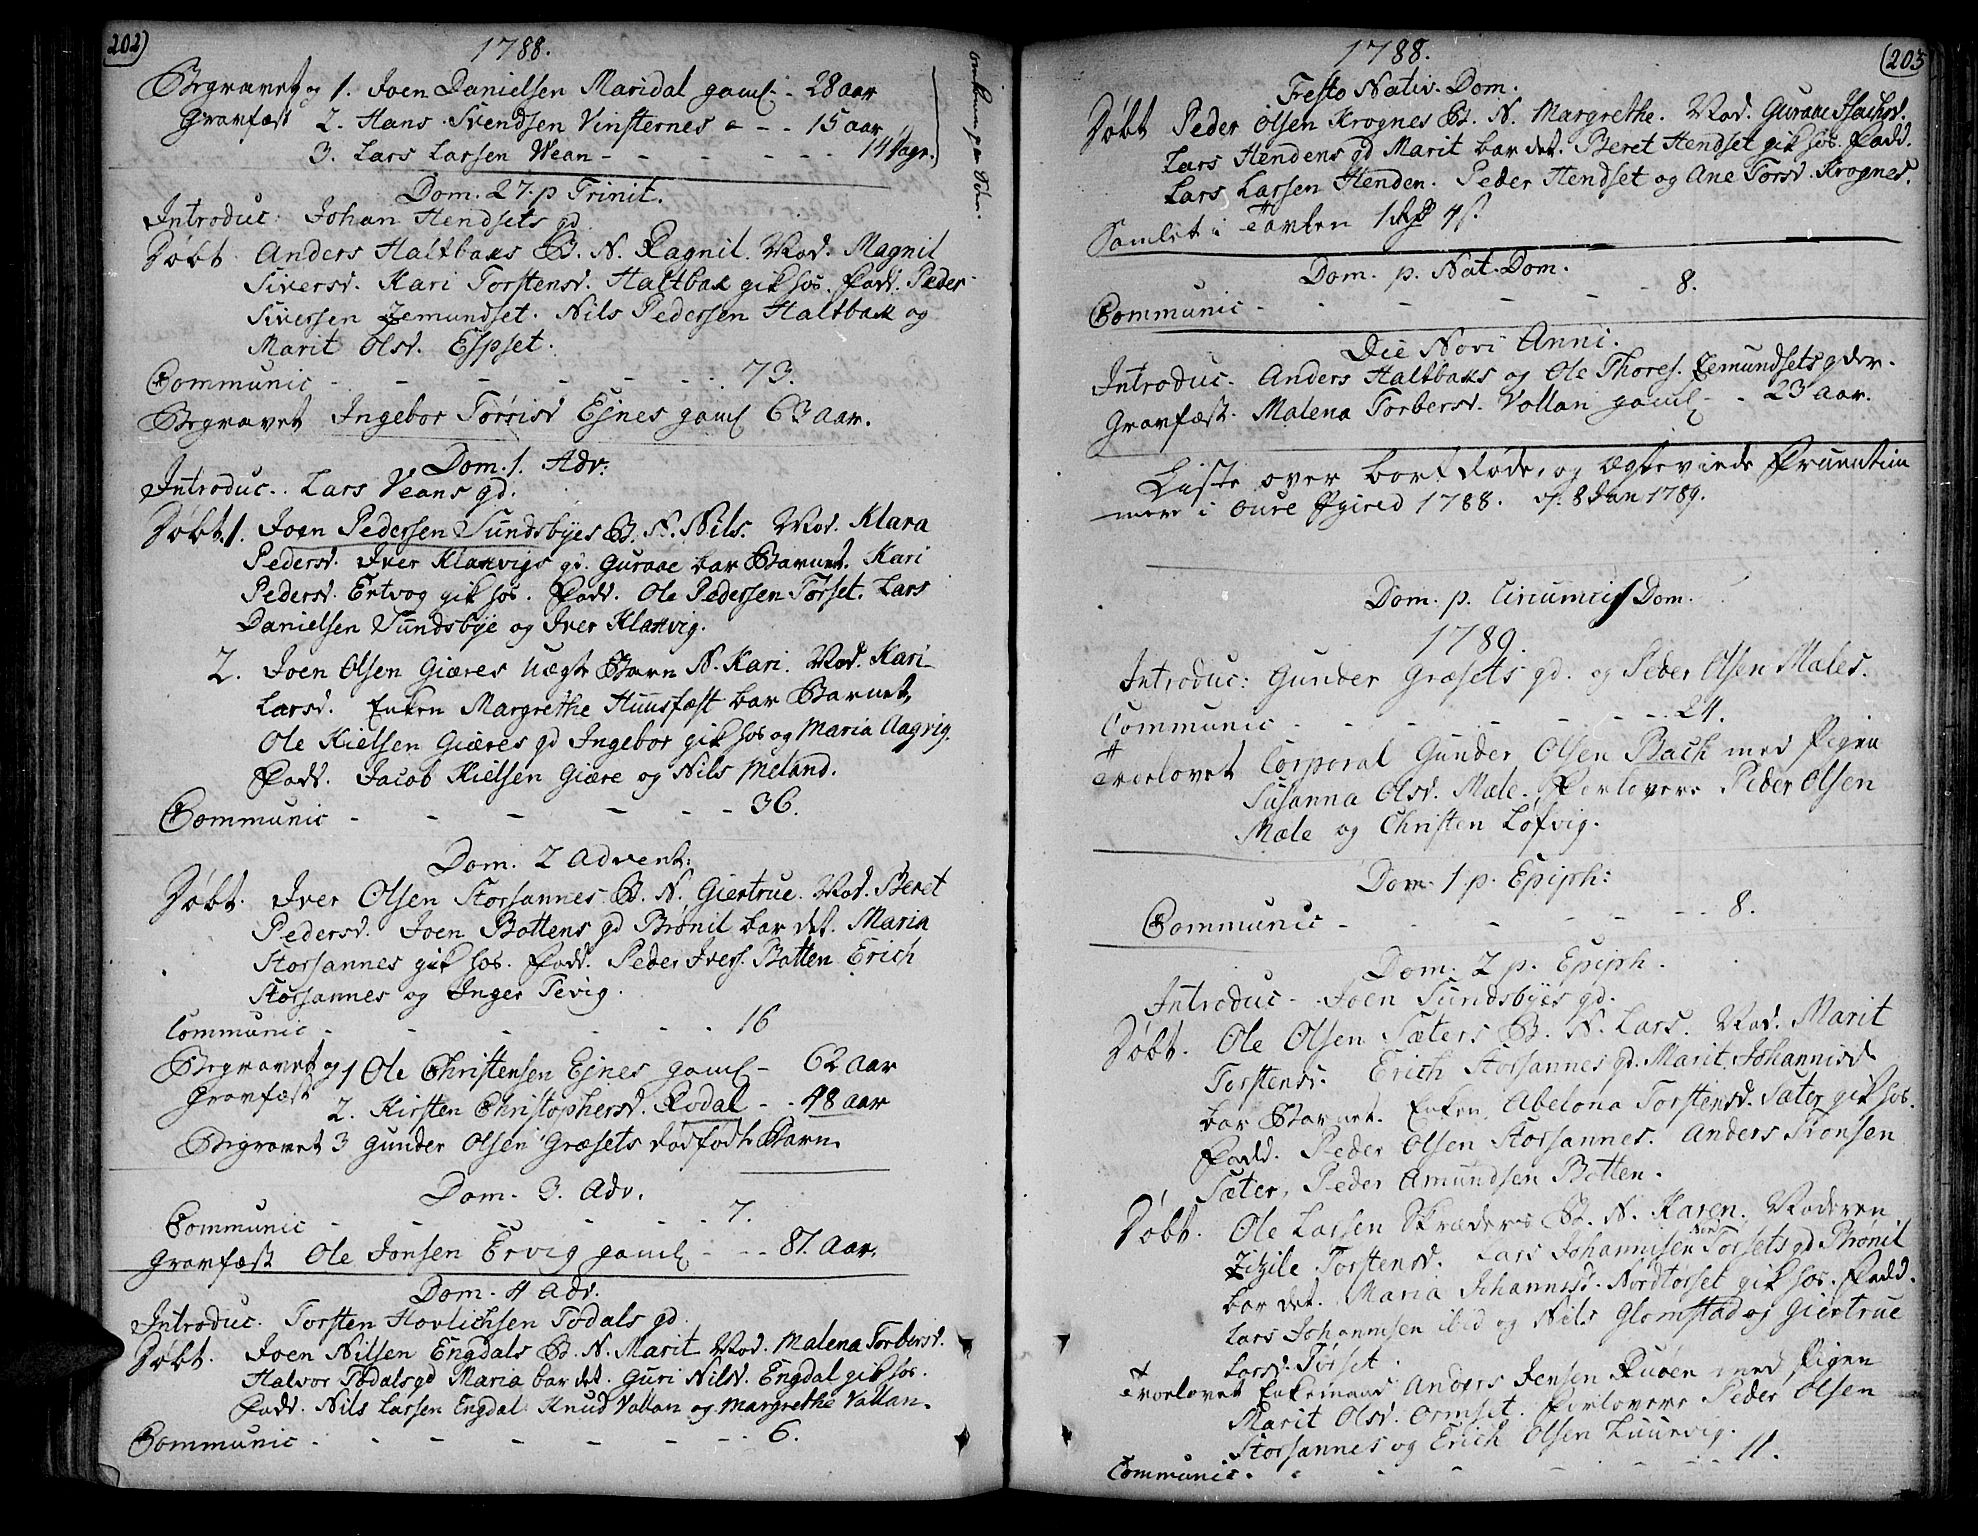 202)
1788.
Begravet og 1. Joen Danielsen Maridal gaml - 28 aar
Gravfæst 2. Hans Svendsen Vinsternes - - - 15 aar
3. Lars Larsen Wean - - - - - - 14 Dage.
Dom. 27. p Trinit.
Introduc: Johan Hendsets gd.
Døbt. Anders Haltbaks B. N. Ragnil. Mod. Magnil
Siversd. Kari Torstensd. Haltbak gik hos. Fadd. Peder
Siversen Zemundset. Nils Pedersen Haltbak og
Marit Olsd. Espset.
Communic - - - - - - - 73.
Begravet Ingebor Torrisd Ejnes gaml 63 Aar.
Dom. 1. Adv:
Introduc. Lars Veans gd.
Døbt. 1. Joen Pedersen Sundsbyes B. N. Nils. Mod. Klara
Pedersd. Iver Klakvigs gd. Guraae bar Barnet. Kari
Pedersd. Ertvog gik hos. Fadd. Ole Pedersen Torset. Lars
Danielsen Sundsbye og Iver Klakvig.
2. Joen Olsen Giæres Uægte Barn N. Kari. Mod. Kari
Larsd. Enken Margrethe Huusfæst bar Barnet,
Ole Kielsen Giæres gd Ingebor gik hos og Maria Aagvig.
Fadd. Jacob Kielsen Giære og Nils Meland.
Communic - - - - - - 36.
Dom. 2 Advent:
Døbt. Iver Olsen Storsannes B. N. Giertrue. Mod. Beret
Pedersd. Joen Bottens gd Brønil bar det. Maria
Storsannes gik hos. Fadd. Peder Ivers. Botten Erich
Storsannes og Inger Tevig.
Communic - - - - - - 16
Begravet og 1 Ole Christensen Ejnes gaml - 62 Aar
Gravfæst 2. Kirsten Christophersd. Rodal - - 48 aar
Begravet 3 Gunder Olsen Græsets dødfødt Barn.
Dom. 3. Adv.
Communic - - - - - - 7.
Gravfæst Ole Jonsen Ervig gaml - - - 87. Aar.
Dom. 4 Adv.
Introduc. Torsten Hovlichsen Todals gd.
Døbt. Joen Nilsen Engdals B. N. Marit Mod. Malena Torbersd.
Halvor Todals gd Maria bar det. Guri Nilsd. Engdal gik hos.
Fadd. Nils Larsen Engdal Knud Vollan og Margrethe Vollan.
Communic - - - - - - - 6.
1788.
(203
Festo Nativ. Dom.
Døbt Peder Olsen Krognes B. N. Margrethe. Mod. Guraae
Lars Hendens gd Marit bar det. Beret Hendset gik hos. Fadd.
Lars Larsen Henden. Peder Hendset og Ane Torsd. Krognes.
Samlet i Tavlen 1 Rd 4 s.
Dom. p. Nat. Dom.
Communic - - - - - - 8.
Die Novi Anni.
Introduc. Anders Haltbaks og Ole Thores. Zemundsets gder.
Gravfæst. Malena Torbersd. Vollan gaml - - 23 aar.
Liste over bort døde, og Ægteviede
i Oure 1788. d. 8 Jan 1789.
Dom. p. Circumcis Dom.
1789.
Introduc: Gunder Græsets gd. og Peder Olsen Males.
Communic - - - - - - - 24.
Trolovet Corporal Gunder Olsen Bach med Pigen
Susanna Olsd. Male. Forlovere Peder Olsen
Mæle og Christen Løfvig.
Dom. 1 p. Epiph:
Communic - - - - - - 8.
Dom. 2 p. Epiph.
Introduc - Joen Sundsbyes gd.
Døbt. Ole Olsen Sæters B. N. Lars. Mod. Marit
Torstensd. Erich Storsannes gd. Marit Johannisd
bar Barnet. Enken Abelona Torstensd. Sæter gik hos.
Fadd. Peder Olsen Storsannes. Anders Tronsen
Sæter, Peder Amundsen Botten.
Døbt. Ole Larsen Skræders B. N. Karen. Moderen
Zizile Torstensd. Lars Johannisen Nord Torsets gd Brønil
bar det. Maria Johannisd. Nordtorset gik hos. Fadd.
Lars Johannisen ibid og Nils Glomstad og Giertrue
Larsd. Torset.
Trolovet Enkemand Anders Jensen Ruøen med Pigen
Marit Olsd. Ormset. Forlovere Peder Olsen
Storsannes og Erich Olsen Luurvig.
Communic. - - - - - - - 11.